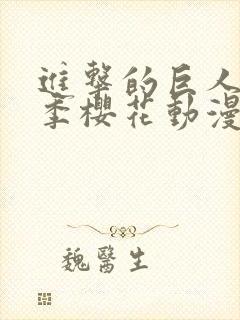 進擊的巨人
季櫻花動漫
魏醫生